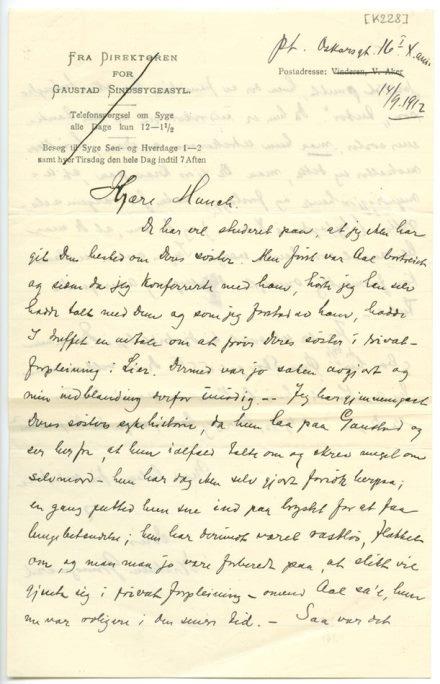 [K228]
Fra Direktøren
for
Gaustad Sindssygeasyl.
Telefonspørgsel om Syge
alle Dage kun 12–1½
Besøg til Syge Søn- og Hverdage 1–2
samt hver Tirsdag den hele Dag indtil 7 Aften
pt. Oscarsgt. 16 I
Postadresse: Vinderen, V. Aker
14/9. 1912
Kjære Munch.
De har vel studeret paa, at jeg ikke har
git Dem besked om Deres søster. Men først var Aal bortreist
og siden da jeg konfererte med ham, hørte jeg han selv
hadde talt med Dem og som jeg forstod av ham, hadde
I truffet en avtale om at prøve Deres søster i privat-
forpleining i Lier. Dermed var jo saken avgjort og
min indblanding derfor unødig –. Jeg har gjennemgaat
Deres søsters sykehistorie, da hun laa paa Gaustad og
ser herfra at hun ialfald talte om og skrev meget om
selvmord – hun har dog ikke selv gjort forsøk herpaa;
en gang puttet hun sne ind paa brystet for at faa
lungebetændelse; hun har derimot været rastløs, flakket
om og man maa jo være forberedt paa, at slikt vil
gjenta sig i privat forpleining – omend Aal sa'e, hun
nu var roligere i den senere tid. – Saa var det